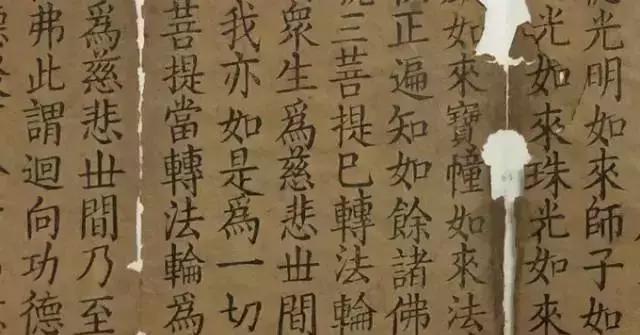 光明如來師子如
光如來珠光如來
如來寶幢如來法
正遍知如餘諸佛
三菩提已轉法輪
衆生爲慈悲世間
我亦如是爲一切
菩提當轉法輪爲
爲慈悲世間乃至
弗此謂迴向功德